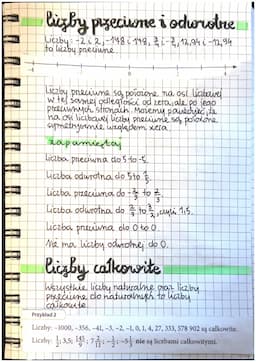 liczby przeciwne i odwrotne
Liczby: -2 i 2, -148 i 148, 3/4 i -3/4, 12,94 i -12,94
to liczby przeciwne.
Liczby przeciwne są położone na osi liczbowej
w tej samej odległości od zera, ale po jego
przeciwnych stronach. Możemy powiedzieć, że
na osi liczbowej liczby przeciwne są położone
symetrycznie względem zera.
zapamiętaj
Liczba przeciwna do 5 to -5.
Liczba odwrotna do 5 to 1/5.
Liczba przeciwna do -2/3 to 2/3.
Liczba odwrotna do 2/3 to 3/2, czyli 1,5.
Liczba przeciwna do 0 to 0.
Nie ma liczby odwrotnej do 0.
liczby całkowite
Wszystkie liczby naturalne oraz liczby
przeciwne do naturalnych to liczby
całkowite.
Przykład 2
Liczby: -1000, -356, -41, -3, -2, -1, 0, 1, 4, 27, 333, 578 902 są całkowite.
nie są liczbami całkowitymi.